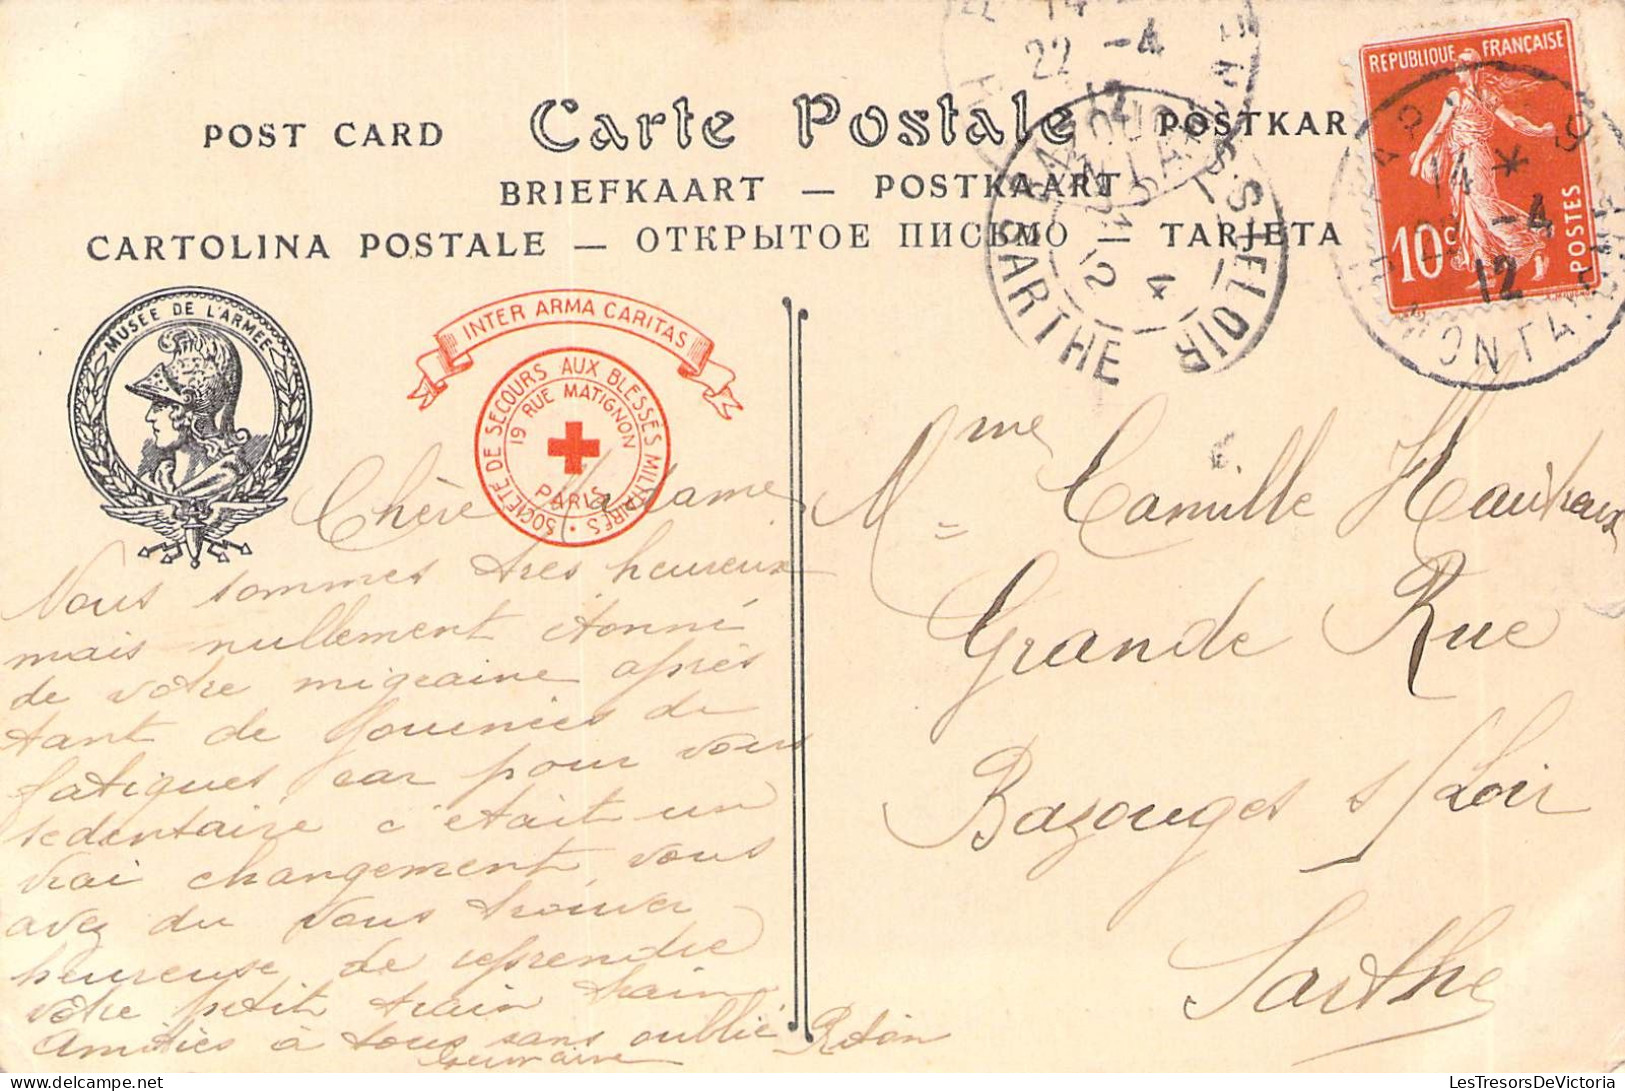 REPUBLIQUE FRANÇAISE
10c POSTES
22 -4
12
14 *
-4
12
POST CARD Carte Postale POSTKAR
BRIEFKAART — POSTKAART
CARTOLINA POSTALE — ОТКРЫТОЕ ПИСЬМО — TARJETA
BAZOUGES-S-LE-LOIR
SARTHE
12 4
MUSÉE DE L'ARMÉE
INTER ARMA CARITAS
SOCIÉTÉ DE SECOURS AUX BLESSÉS MILITAIRES
19 RUE MATIGNON
PARIS
Chère Madame
Nous sommes très heureux
mais nullement étonné
de votre migraine après
tant de journées de
fatigues car pour vous
sédentaire c'était un
vrai changement, vous
avez du vous trouver
heureuse de reprendre
votre petit train train
Amitiés à tous sans oublié
Germaine
Mme Camille
Grande Rue
Bazouges s/Loir
Sarthe
LesTresorsDeVictoria